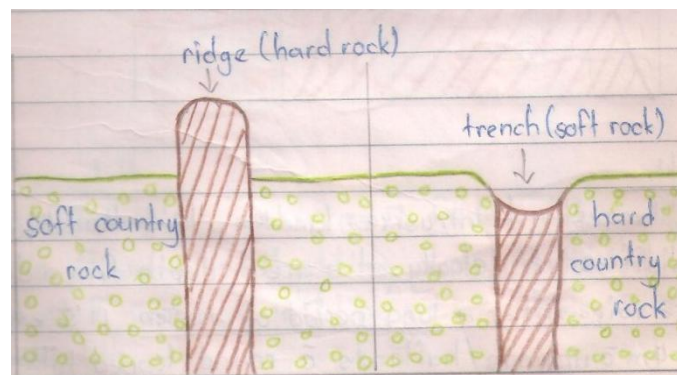 ridge (hard rock)
trench (soft rock)
soft country
rock
hard
country
rock